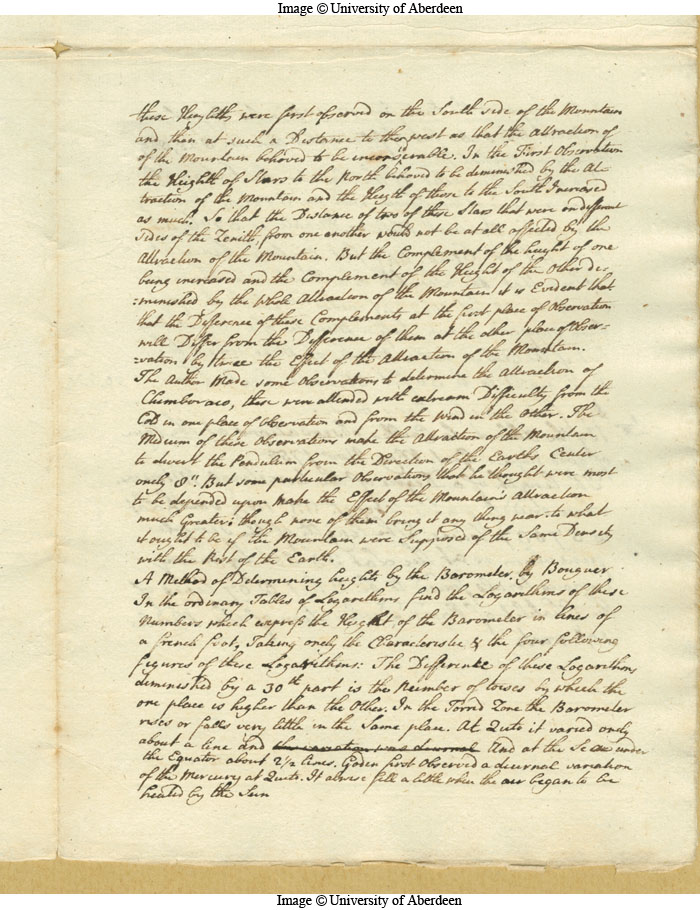 Image © University of Aberdeen
these Heighths were first observed on the South side of the Mountain
and then at such a Distance to the west as that the attraction of
of the Mountain behoved to be inconsiderable. In the First Observation
the Heighth of Stars to the North behoved to be deminished by the At-
traction of the Mountain and the Heigth of those to the South Increased
as much. So that the Distance of two of these Stars that were on different
sides of the Zenith from one another would not be at all affected by the
Attraction of the Mountain. But the Complement of the height of one
being increased and the Complement of the Height of the Other di-
=minished by the whole Attraction of the Mountain it is Evident that
that the Difference of these Complements at the first place of Observation
will Differ from the Difference of them at the other place of Obser=
=vation by twice the Effect of the Attraction of the Mountain.
The Author Made some Observations to determine the attraction of
Chimboraco, these were attended with extream Difficulty from the
Cold in one place of Observation and from the Wind in the Other. The
Medium of these Observations make the Attraction of the Mountain
to divert the Pendulum from the Direction of the Earths Center
onely 8". But some particular Observations that he thought were most
to be depended upon make the Effect of the Mountain's attraction
much Greater; though none of them bring it any thing near to what
it ought to be if the Mountain were Supposed of the Same Density
with the Rest of the Earth.
A Method of Determining heights by the Barometer, by Bouguer
In the ordinary Tables of Logarithms find the Logarithms of these
Numbers which express the Height of the Barometer in lines of
a french foot, Taking onely the Characteristic & the four following
figures of these Logarithms: The Difference of these Logarithms
diminished by a 30th part is the Number of toises by which the
one place is higher than the Other. In the Torrid Zone the Barometer
rises or falls very little in the Same place. At Quito it varied only
about a line and the variation was diurnal And at the Sea under
the Equator about 2 1/2 lines. Godin first Observed a diurnal variation
of the Mercury at Quito. It always fell a little when the air began to be
heated by the Sun
Image © University of Aberdeen